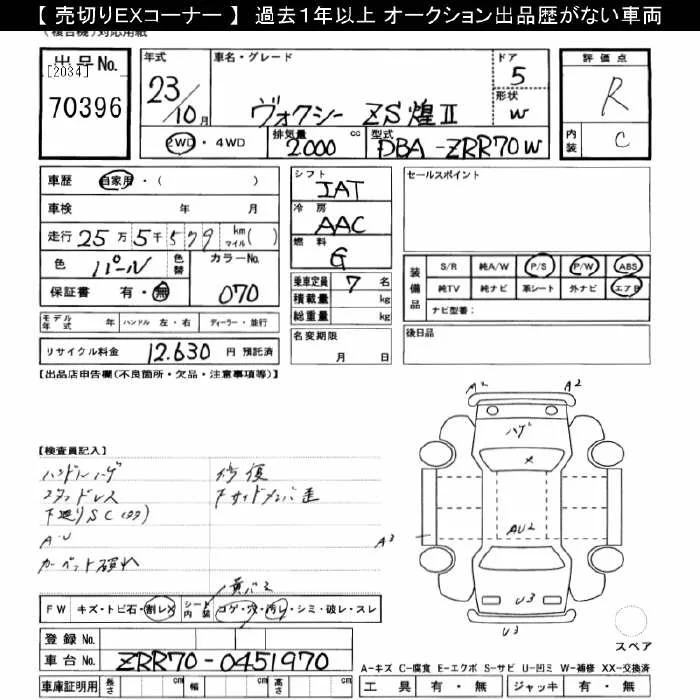 【 売切りEXコーナー 】 過去１年以上 オークション出品歴がない車両
出品No.
[2034]
70396
年式
23/10月
車名・グレード
ヴォクシー ZS煌Ⅱ
ドア
5
形状
W
2WD・4WD
排気量 cc
2.000
型式
DBA-ZRR70W
評価点
R
内装
C
車歴 自家用・( )
車検 年 月
走行 25万5千579 km マイル( )
色 パール 色替
カラーNo.
070
保証書 有・無
モデル年式 年 ハンドル 左・右 ディーラー・並行
リサイクル料金 12.630 円 預託済
シフト
IAT
冷房
AAC
燃料
G
乗車定員 7 名
積載量 kg
総重量 kg
名変期限
月 日
セールスポイント
装備品
S/R 純A/W P/S P/W ABS
純TV 純ナビ 革シート 外ナビ エアB
ナビ型番：
後日品
【出品店申告欄(不良箇所・欠品・注意事項等)】
【検査員記入】
ハンドルハゲ
スタッドレス
下廻りSC
A・U
カーペット破れ
修復
A2 A2
ハゲ
×
AU2
A3
U3
U3
スペア
FW キズ・トビ石・割レX シート内装 コゲ・穴・汚レ・シミ・破レ・スレ
登録No.
車台No. ZRR70-0451970
車庫証明用 長さ cm 幅 cm 高さ cm
A-キズ C-腐食 E-エクボ S-サビ U-凹ミ W-補修 XX-交換済
工具 有・無 ジャッキ 有・無